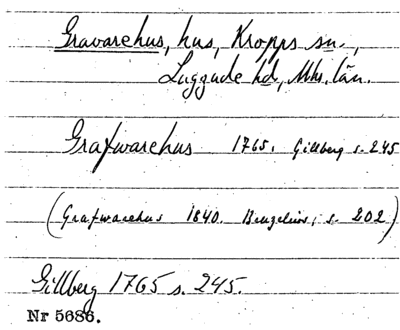 Gravarehus, hus, Kropps sn.,
Luggude hd, Mhs. län.
Grafwarehus 1765. Gillberg s. 245
(Grafwarehus 1840. Bruzelius, s. 202)
Gillberg 1765 s. 245.
Nr 5686.